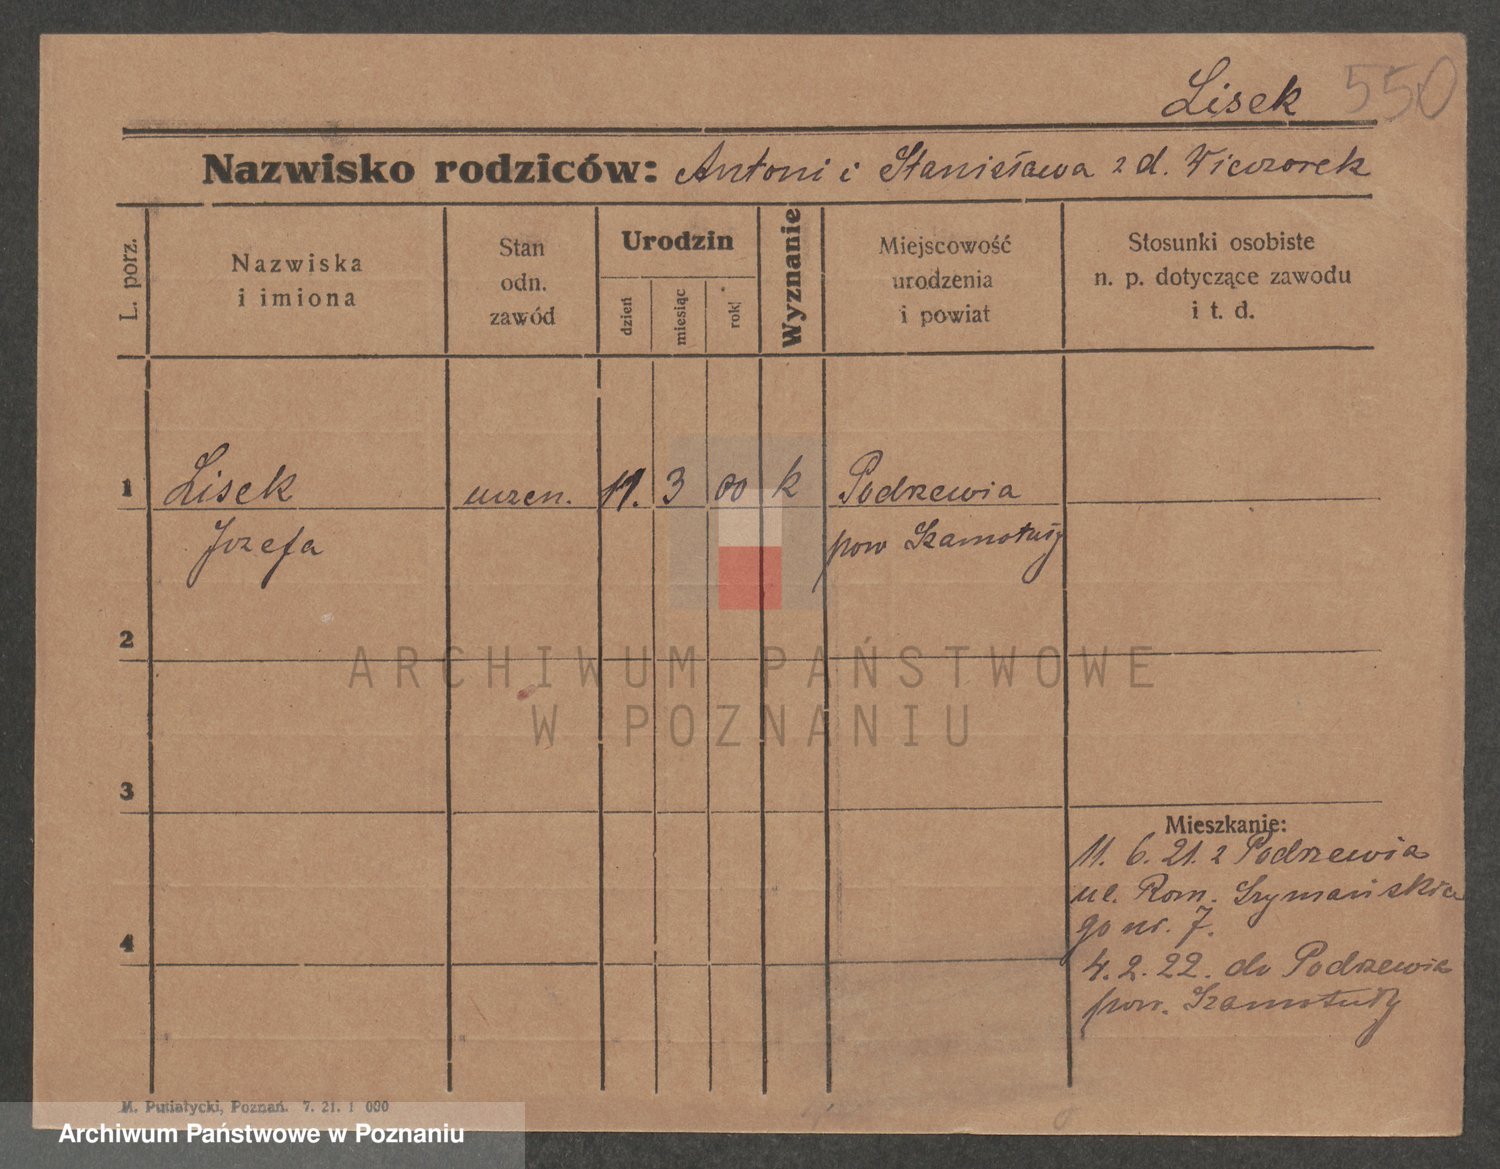 Lisek 550
Nazwisko rodziców: Antoni i Stanisława z d. Wieczorek
L. porz.
Nazwiska
i imiona
Stan
odn.
zawód
Urodzin
dzień
miesiąc
rok
Wyznanie
Miejscowość
urodzenia
i powiat
Stosunki osobiste
n. p. dotyczące zawodu
i t. d.
1 Lisek uczen. 11. 3 00 k Podrzewia
Józefa pow Szamotuły
2
ARCHIWUM PAŃSTWOWE
W POZNANIU
3
Mieszkanie:
11. 6. 21. z Podrzewia
ul. Rom. Szymańskie
go nr. 7.
4
4. 2. 22. do Podrzewia
pow. Szamotuły
M. Putiatycki, Poznań. 7. 21. 1 000
Archiwum Państwowe w Poznaniu